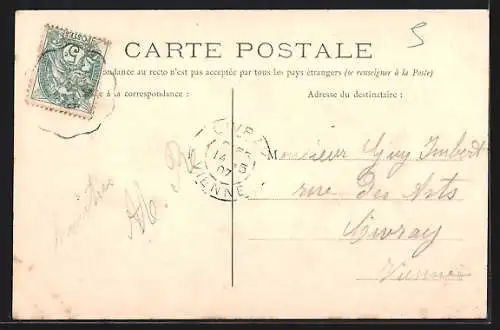 5
CARTE POSTALE
ondance au recto n'est pas acceptée par tous les pays étrangers (se renseigner à la Poste)
e à la correspondance :
Adresse du destinataire :
CIVRAY
14 -5
07
VIENNE
Monsieur Guy Imbert
rue des Arts
Civray
Vienne